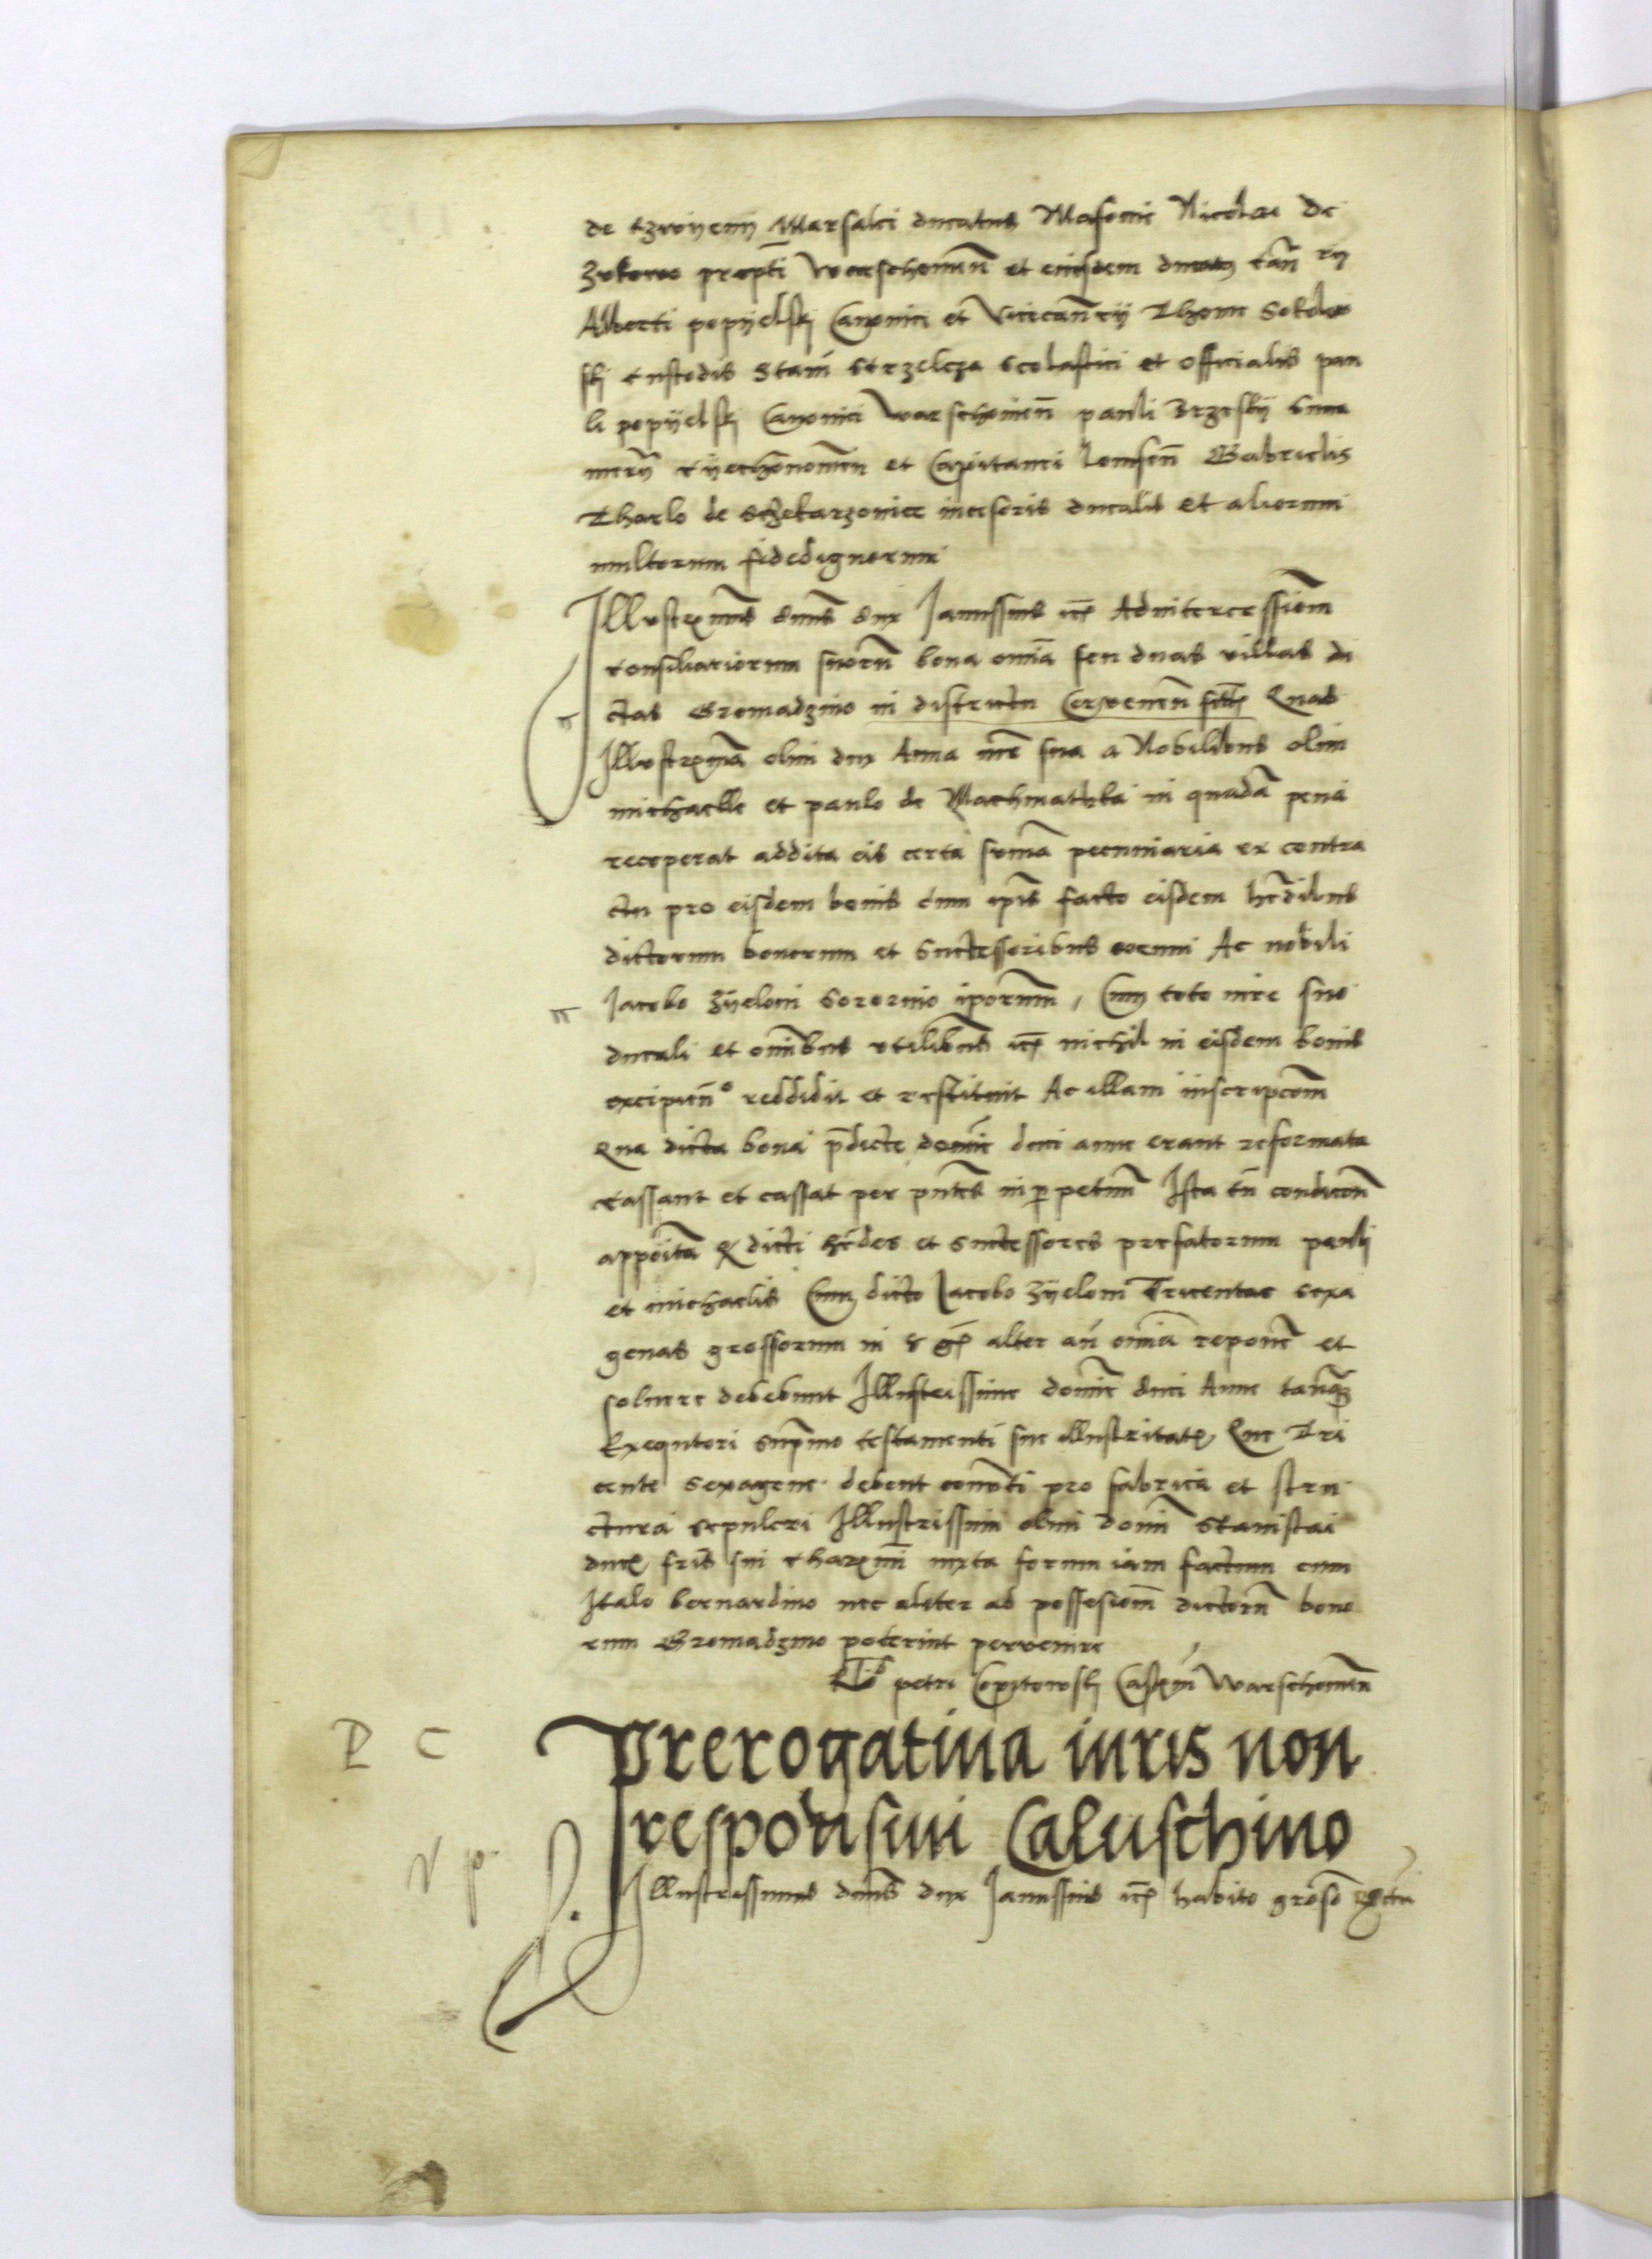 de tzwyenij Marsalci ducatus Masovie Nicolai de
Zukowo prepti Warschovien et eiusdem ducatus can rij
Alberti popyelskj Canonici et Vicecancrij Thome Sokolow
skj Custodis Stani Strzelcza Scolastici et officialis pau
li popyelskj Canonici Warschovien pauli Brzeskij
Cyechonovien et Capitanei Lomsen Gabrielis
Tharlo de Sczekarzovice incisoris ducalis et aliorum
multorum fidedignorum
Illustrimus dnus dux Janussius etc Ad intercessionem
consiliariorum suorum bona omnia seu duas villas di
ctas Gromadzino in districtu Czirvenen Quas
Illustrima olim dux Anna mre sua a Nobilibus olim
michaelle et paulo de Machnathka in quada pena
receperat addita eis certa suma pecuniaria ex contra
ctu pro eisdem bonis cum ipis facto eisdem hredibus
dictorum bonorum et Successoribus eorum Ac nobili
Jacobo Zyeloni Sororino iporum, Cum toto iure suo
ducali et omibus utilibus etc nichil in eisdem bonis
excipiendo reddidit et restituit Ac illam inscripcom
Qua dicta bona pdicte domine duci anne erant reformata
cassant et cassat per pntes in perpetuum Ista tn condicion
apposita Quod dicti hrdes et Successores prefatorum pauli
et michaelis Cum dicto Jacobo Zyeloni Tricentas sexa
genas grossorum in alter an omnia reponere et
solvere debebunt Illustrissime domine duci Anne tanquam
Exequtori supmo testamenti sue illustritatis Que Tri
cente Sexagene debent converti pro fabrica et stru
ctura sepulcri Illustrissimi olim domini Stanislai
ducis fris sui charimi iuxta forum iam factum cum
Italo bernardino nec aliter ad possesionem dictorum bono
rum Gromadzino poterint pervenire
petri Copitowskj Castellani Warschovien
Prerogativa iuris non
responsivi Caluschino
Illustrissimus dnus dux Janussius etc habito groso
P C
V p